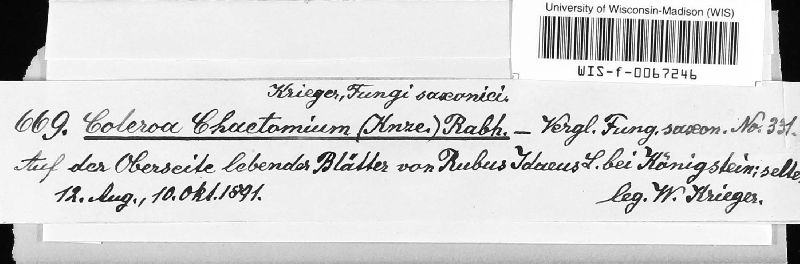 University of Wisconsin-Madison (WIS)
WIS-f-0067246
Krieger, Fungi saxonici.
669. Coleroa Chaetomium (Knze.) Rabh. — Vergl. Fung. saxon. No. 331.
Auf der Oberseite lebender Blätter von Rubus Idaeus L. bei Königstein; selte
12. Aug., 10. Okt. 1891.
leg. W. Krieger.